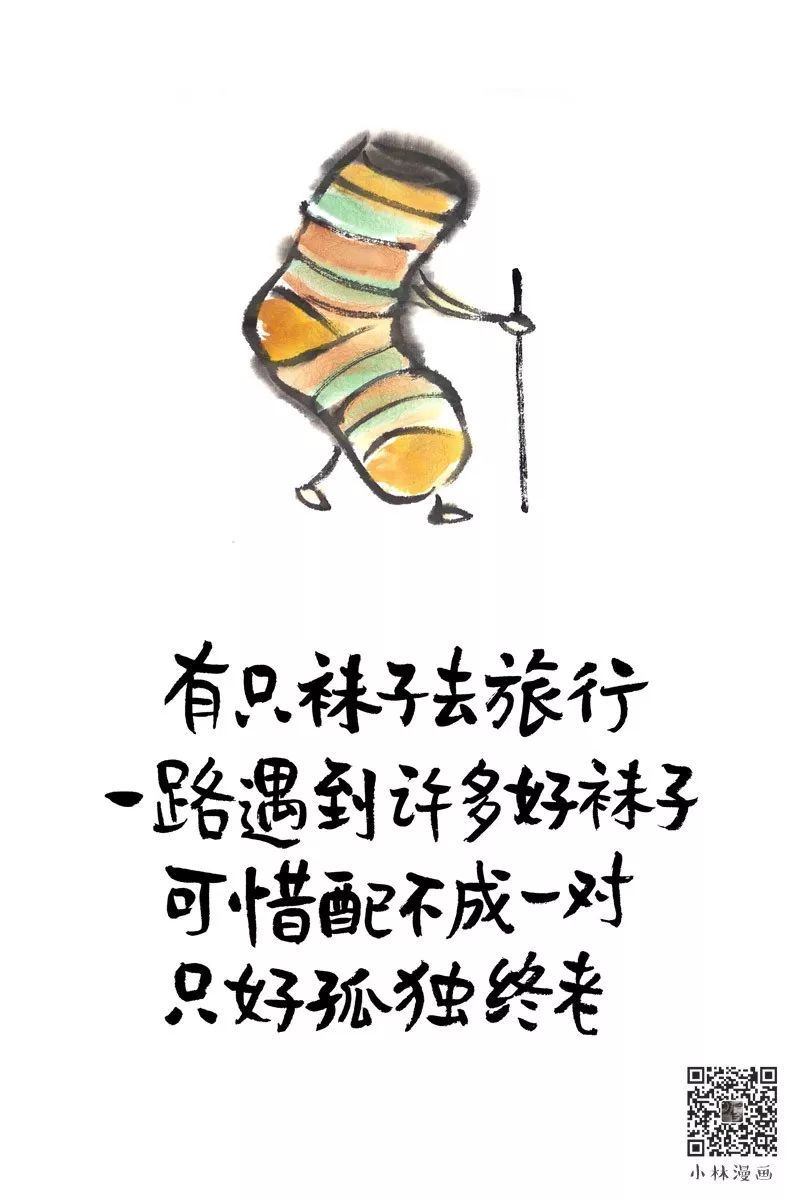 有只袜子去旅行
一路遇到许多好袜子
可惜配不成一对
只好孤独终老
小林漫画